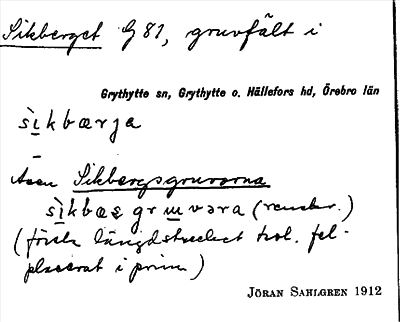 Sikberget G 81, gruvfält i
Grythytte sn, Grythytte o. Hällefors hd, Örebro län
sìkbærja
Även Sikbergsgruvorna
sìkbæsgruvara (renskr.)
(första längdstrecket trol. fel-
placerat i prim)
JÖRAN SAHLGREN 1912